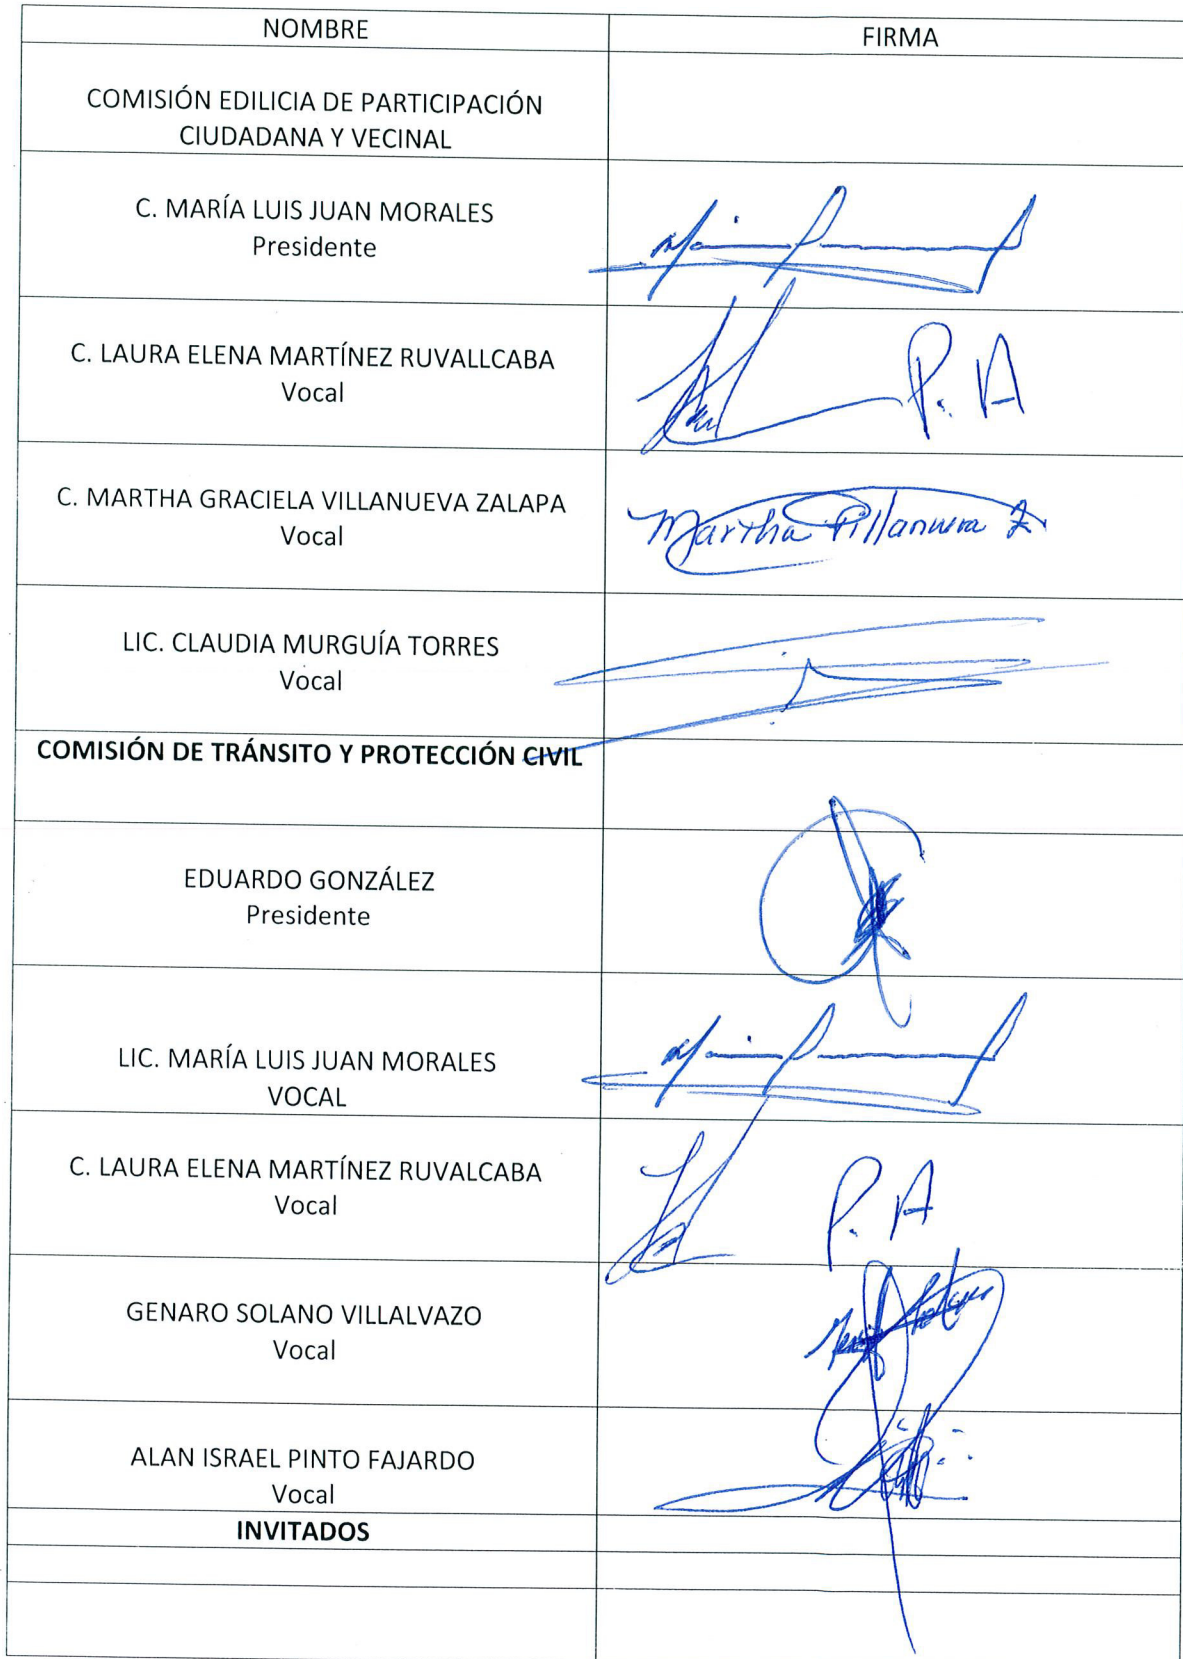 NOMBRE
FIRMA
COMISIÓN EDILICIA DE PARTICIPACIÓN
CIUDADANA Y VECINAL
C. MARÍA LUIS JUAN MORALES
Presidente
C. LAURA ELENA MARTÍNEZ RUVALLCABA
Vocal
P. A
C. MARTHA GRACIELA VILLANUEVA ZALAPA
Vocal
Martha Villanueva Z
LIC. CLAUDIA MURGUÍA TORRES
Vocal
COMISIÓN DE TRÁNSITO Y PROTECCIÓN CIVIL
EDUARDO GONZÁLEZ
Presidente
LIC. MARÍA LUIS JUAN MORALES
VOCAL
C. LAURA ELENA MARTÍNEZ RUVALCABA
Vocal
P. A
GENARO SOLANO VILLALVAZO
Vocal
ALAN ISRAEL PINTO FAJARDO
Vocal
INVITADOS